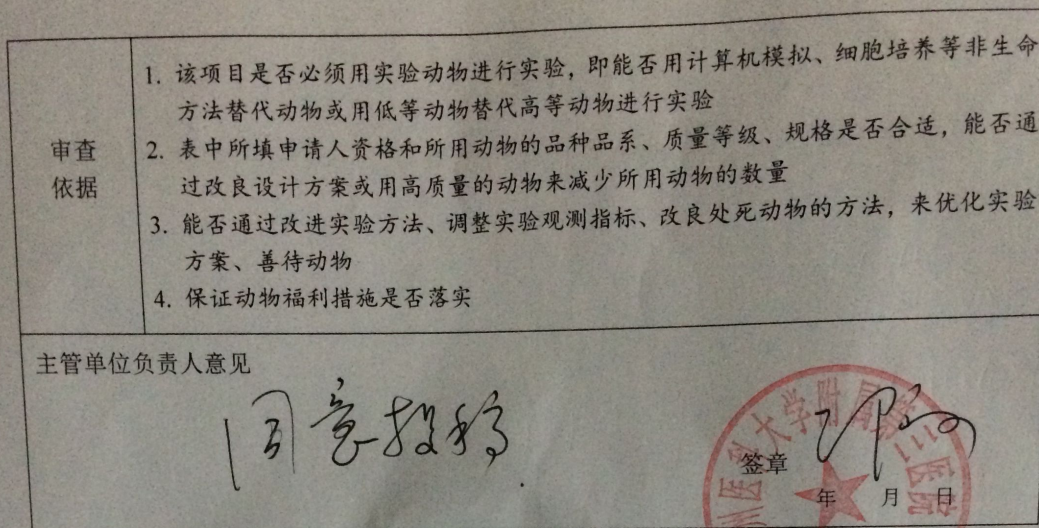 审查
依据
1. 该项目是否必须用实验动物进行实验，即能否用计算机模拟、细胞培养等非生命
方法替代动物或用低等动物替代高等动物进行实验
2. 表中所填申请人资格和所用动物的品种品系、质量等级、规格是否合适，能否通
过改良设计方案或用高质量的动物来减少所用动物的数量
3. 能否通过改进实验方法、调整实验观测指标、改良处死动物的方法，来优化实验
方案、善待动物
4. 保证动物福利措施是否落实
主管单位负责人意见
同意投稿
州医科大学附属第三医院
签章
年 月 日